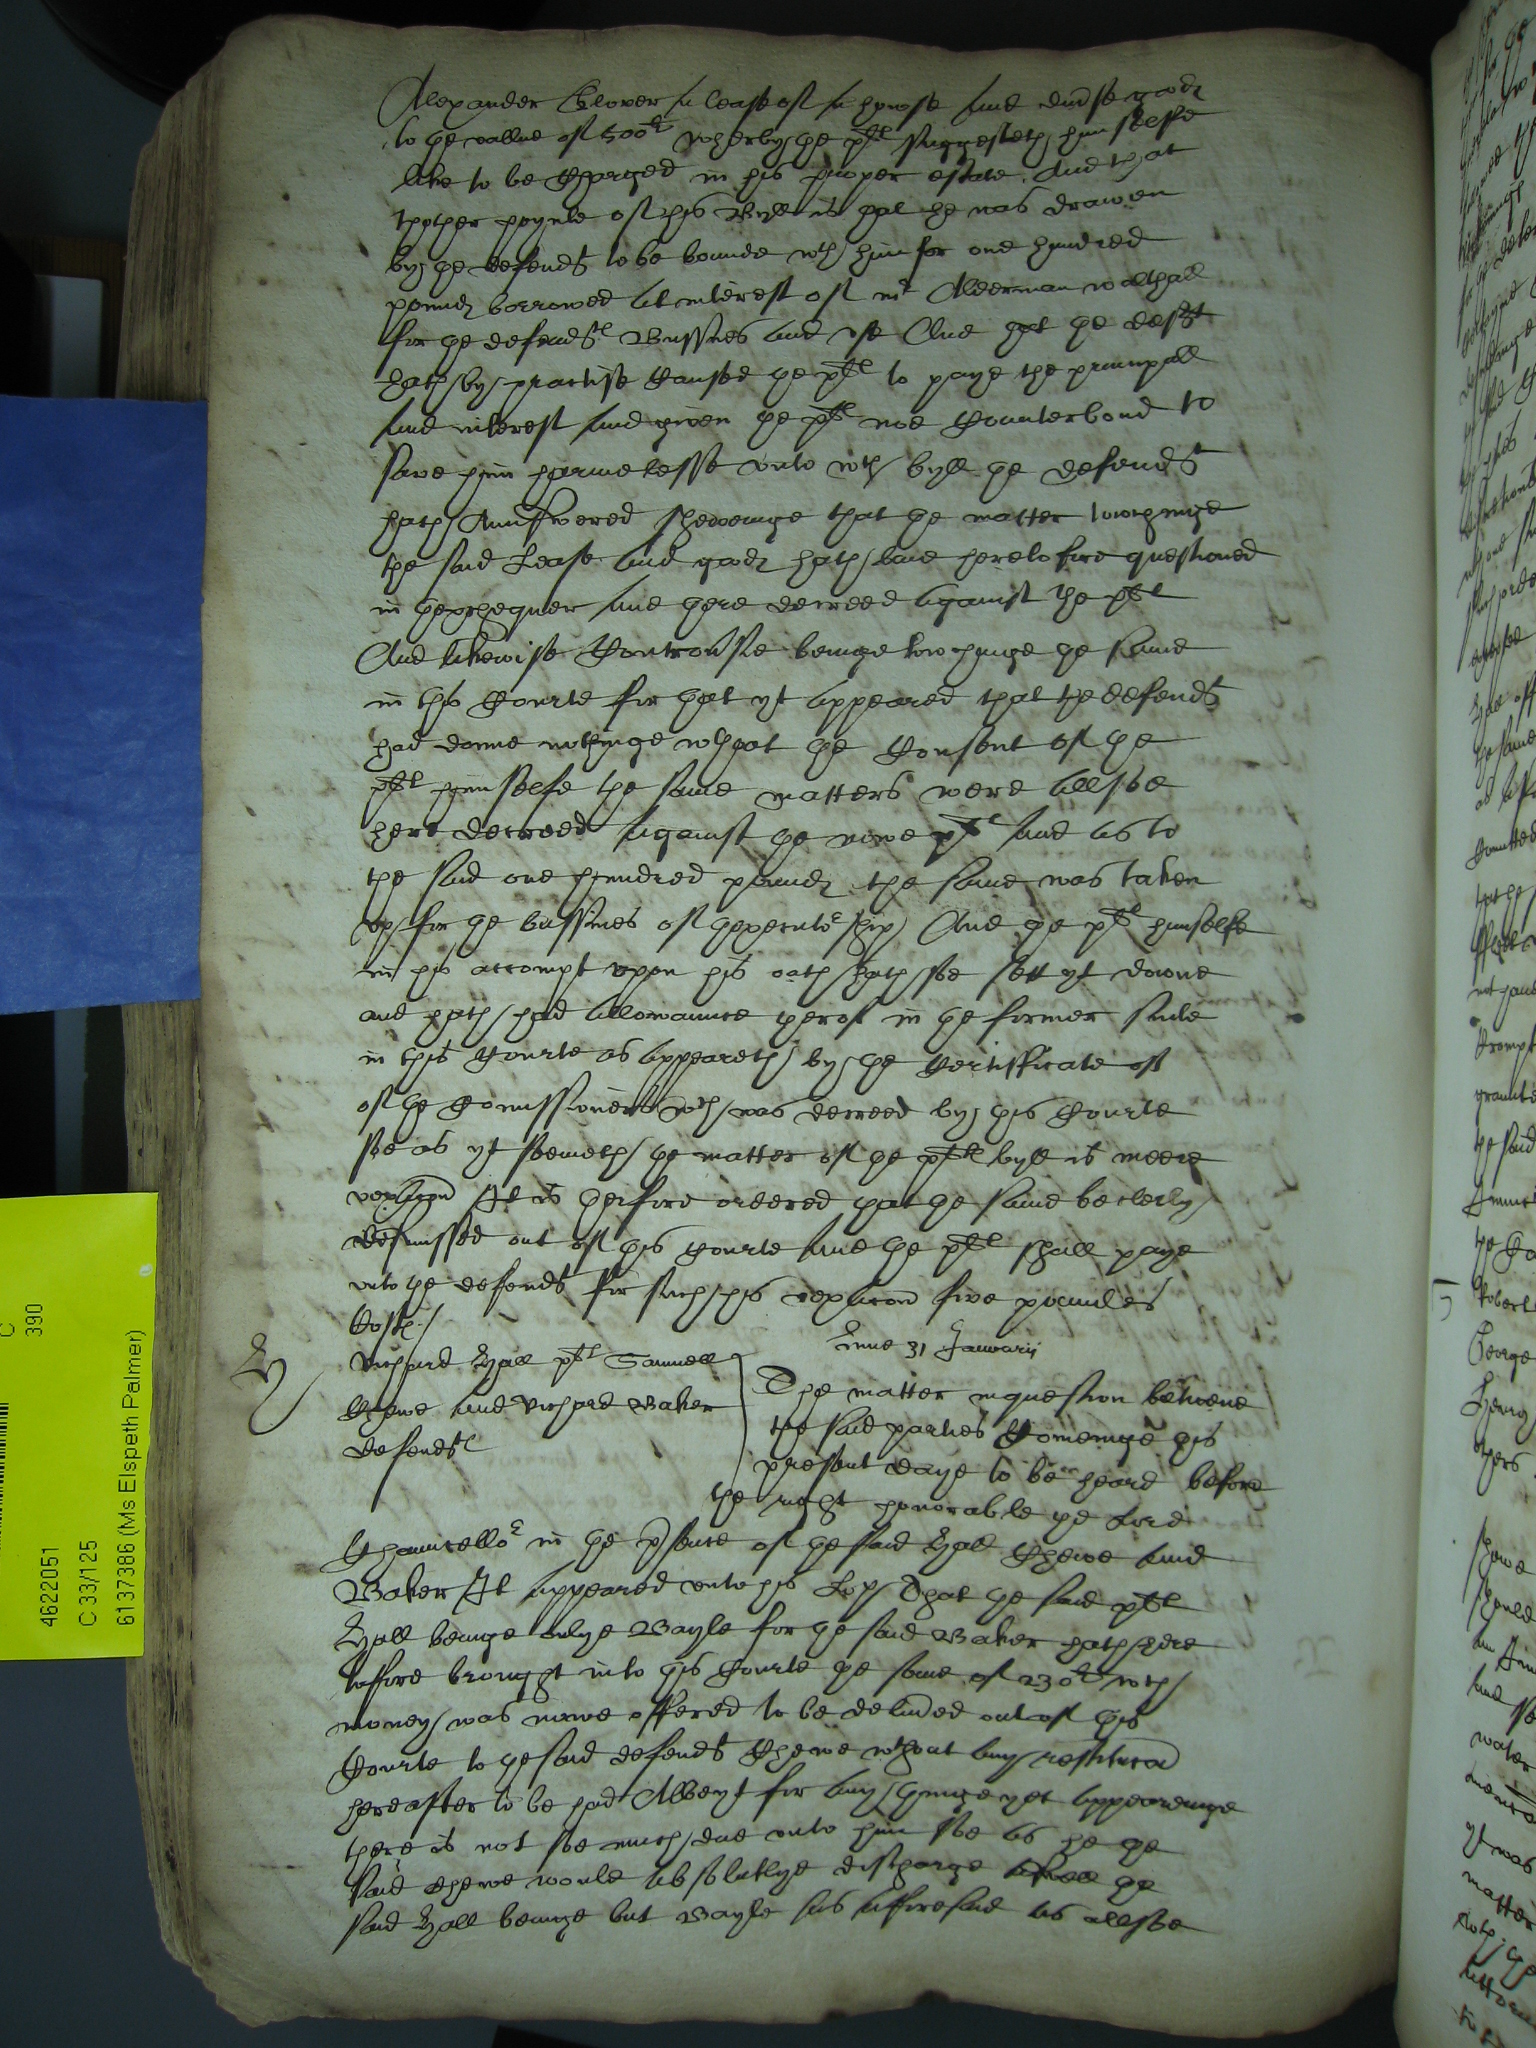 Alexander Glover a lease of a howse and divse goodꝭ
to the vallue of 500li wherby the plt suggesteth him selfe
like to be charged in his proper estate. And that
thother poynte of his Byll is that he was drawen
by the defendt to be bounde wth him for one hundred
poundꝭ borrowed at interest of mr Alderman walthall
for the defendtes Bussines and use And that the defendt
hath by practise caused the plt to paye the principall
and interest and given the plt noe Counterbond to
save him harmelesse unto wch byll the defendt
hath Aunswered shewinge that the matter towchinge
the said Lease and goodꝭ hath bine heretofore questioned
in thexchequer and there decreed against the plt
And likewise Controvsie beinge towchinge the same
in this Courte for that yt appeared that the defendt
had donne nothinge wthout the Consent of the
plt himselfe the same matters were allsoe
here decreed against the nowe plt And as to
the said one hundred poundꝭ the same was taken
up for the bussines of thexecutorship And the plt himselfe
in his accompt uppon his oath hath soe sett yt downe
and hath had allowaunce therof in the former suite
in this Courte as appeareth by the Certifficate of
of the Comissioners wch was decreed by this Courte
soe as yt seemeth the matter of the pltes byll is meere
vexacon It is therfore ordered that the same be clerly
dismissed out of this Courte And the plt shall paye
unto the defendt for such his vexacon five poundes
Costꝭ
Richard Hall plt Samuell
Chewe and Richard Baker
defendtes
Lune 31 Januarij
The matter in question betwene
the said parties Cominge this
present daye to be heard before
the right honorable the Lord
Chauncellor in the psence of the said Hall Chewe and
Baker It appeared unto his Lop That the said plt
Hall beinge onlye Bayle for the said Baker hath here
tofore brought into this Courte the some of 230li wch
money was nowe offered to be delivred out of this
Courte to the said defendt Chewe wthout any restitucon
hereafter to be had Albeyt for any thinge yet appearinge
there is not soe much due unto him soe as he the
said Chewe would absolutlye discharge the
said Hall beinge but Bayle as afforesaid as allsoe
H
C
390
4622051
C 33/125
6137386 (Ms Elspeth Palmer)